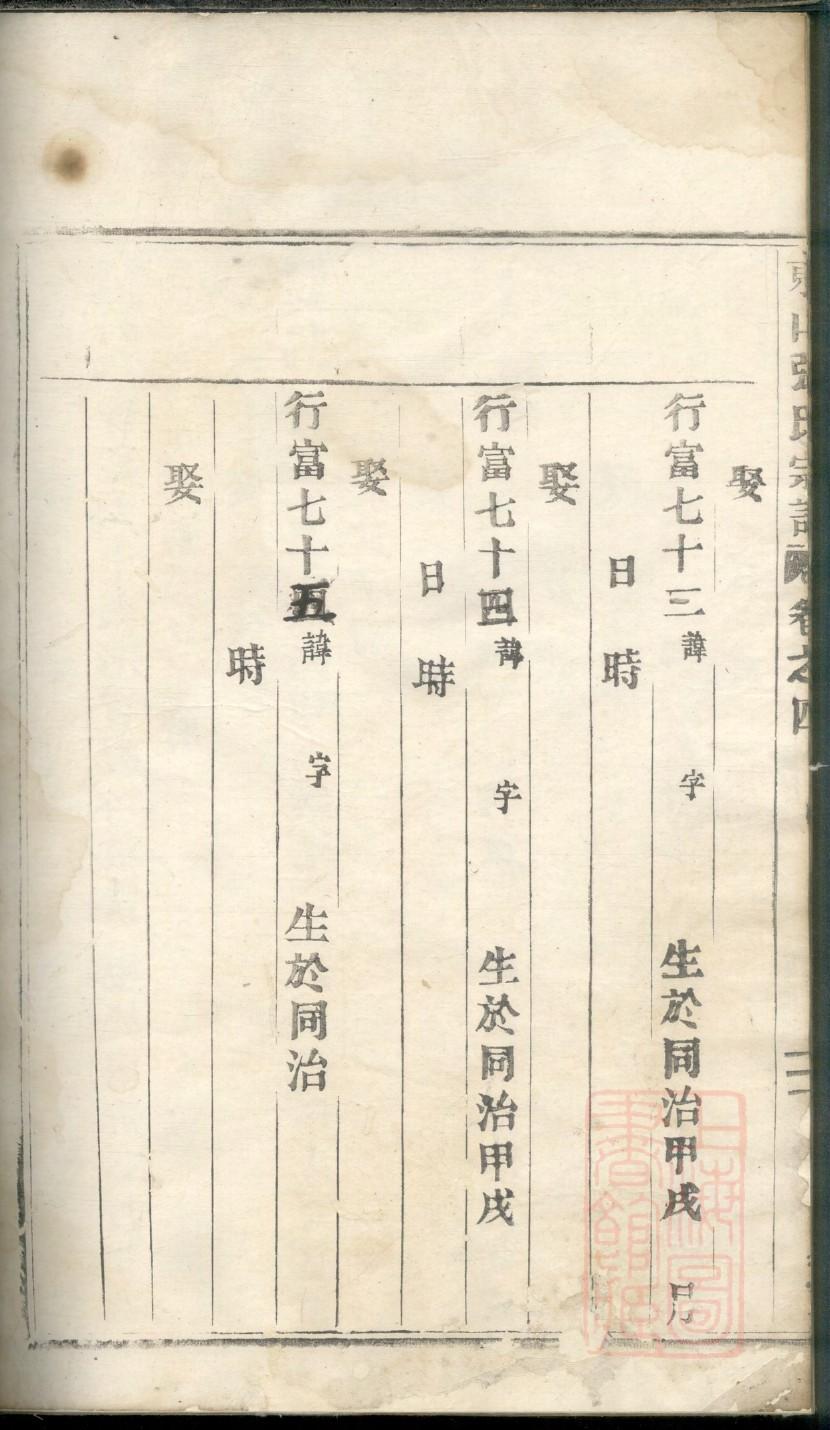 張氏宗譜 卷之四
娶
行富七十三 諱 字 生於同治甲戌 月
日 時
娶
行富七十四 諱 字 生於同治甲戌
日 時
娶
行富七十五 諱 字 生於同治
時
娶
上海圖書館藏